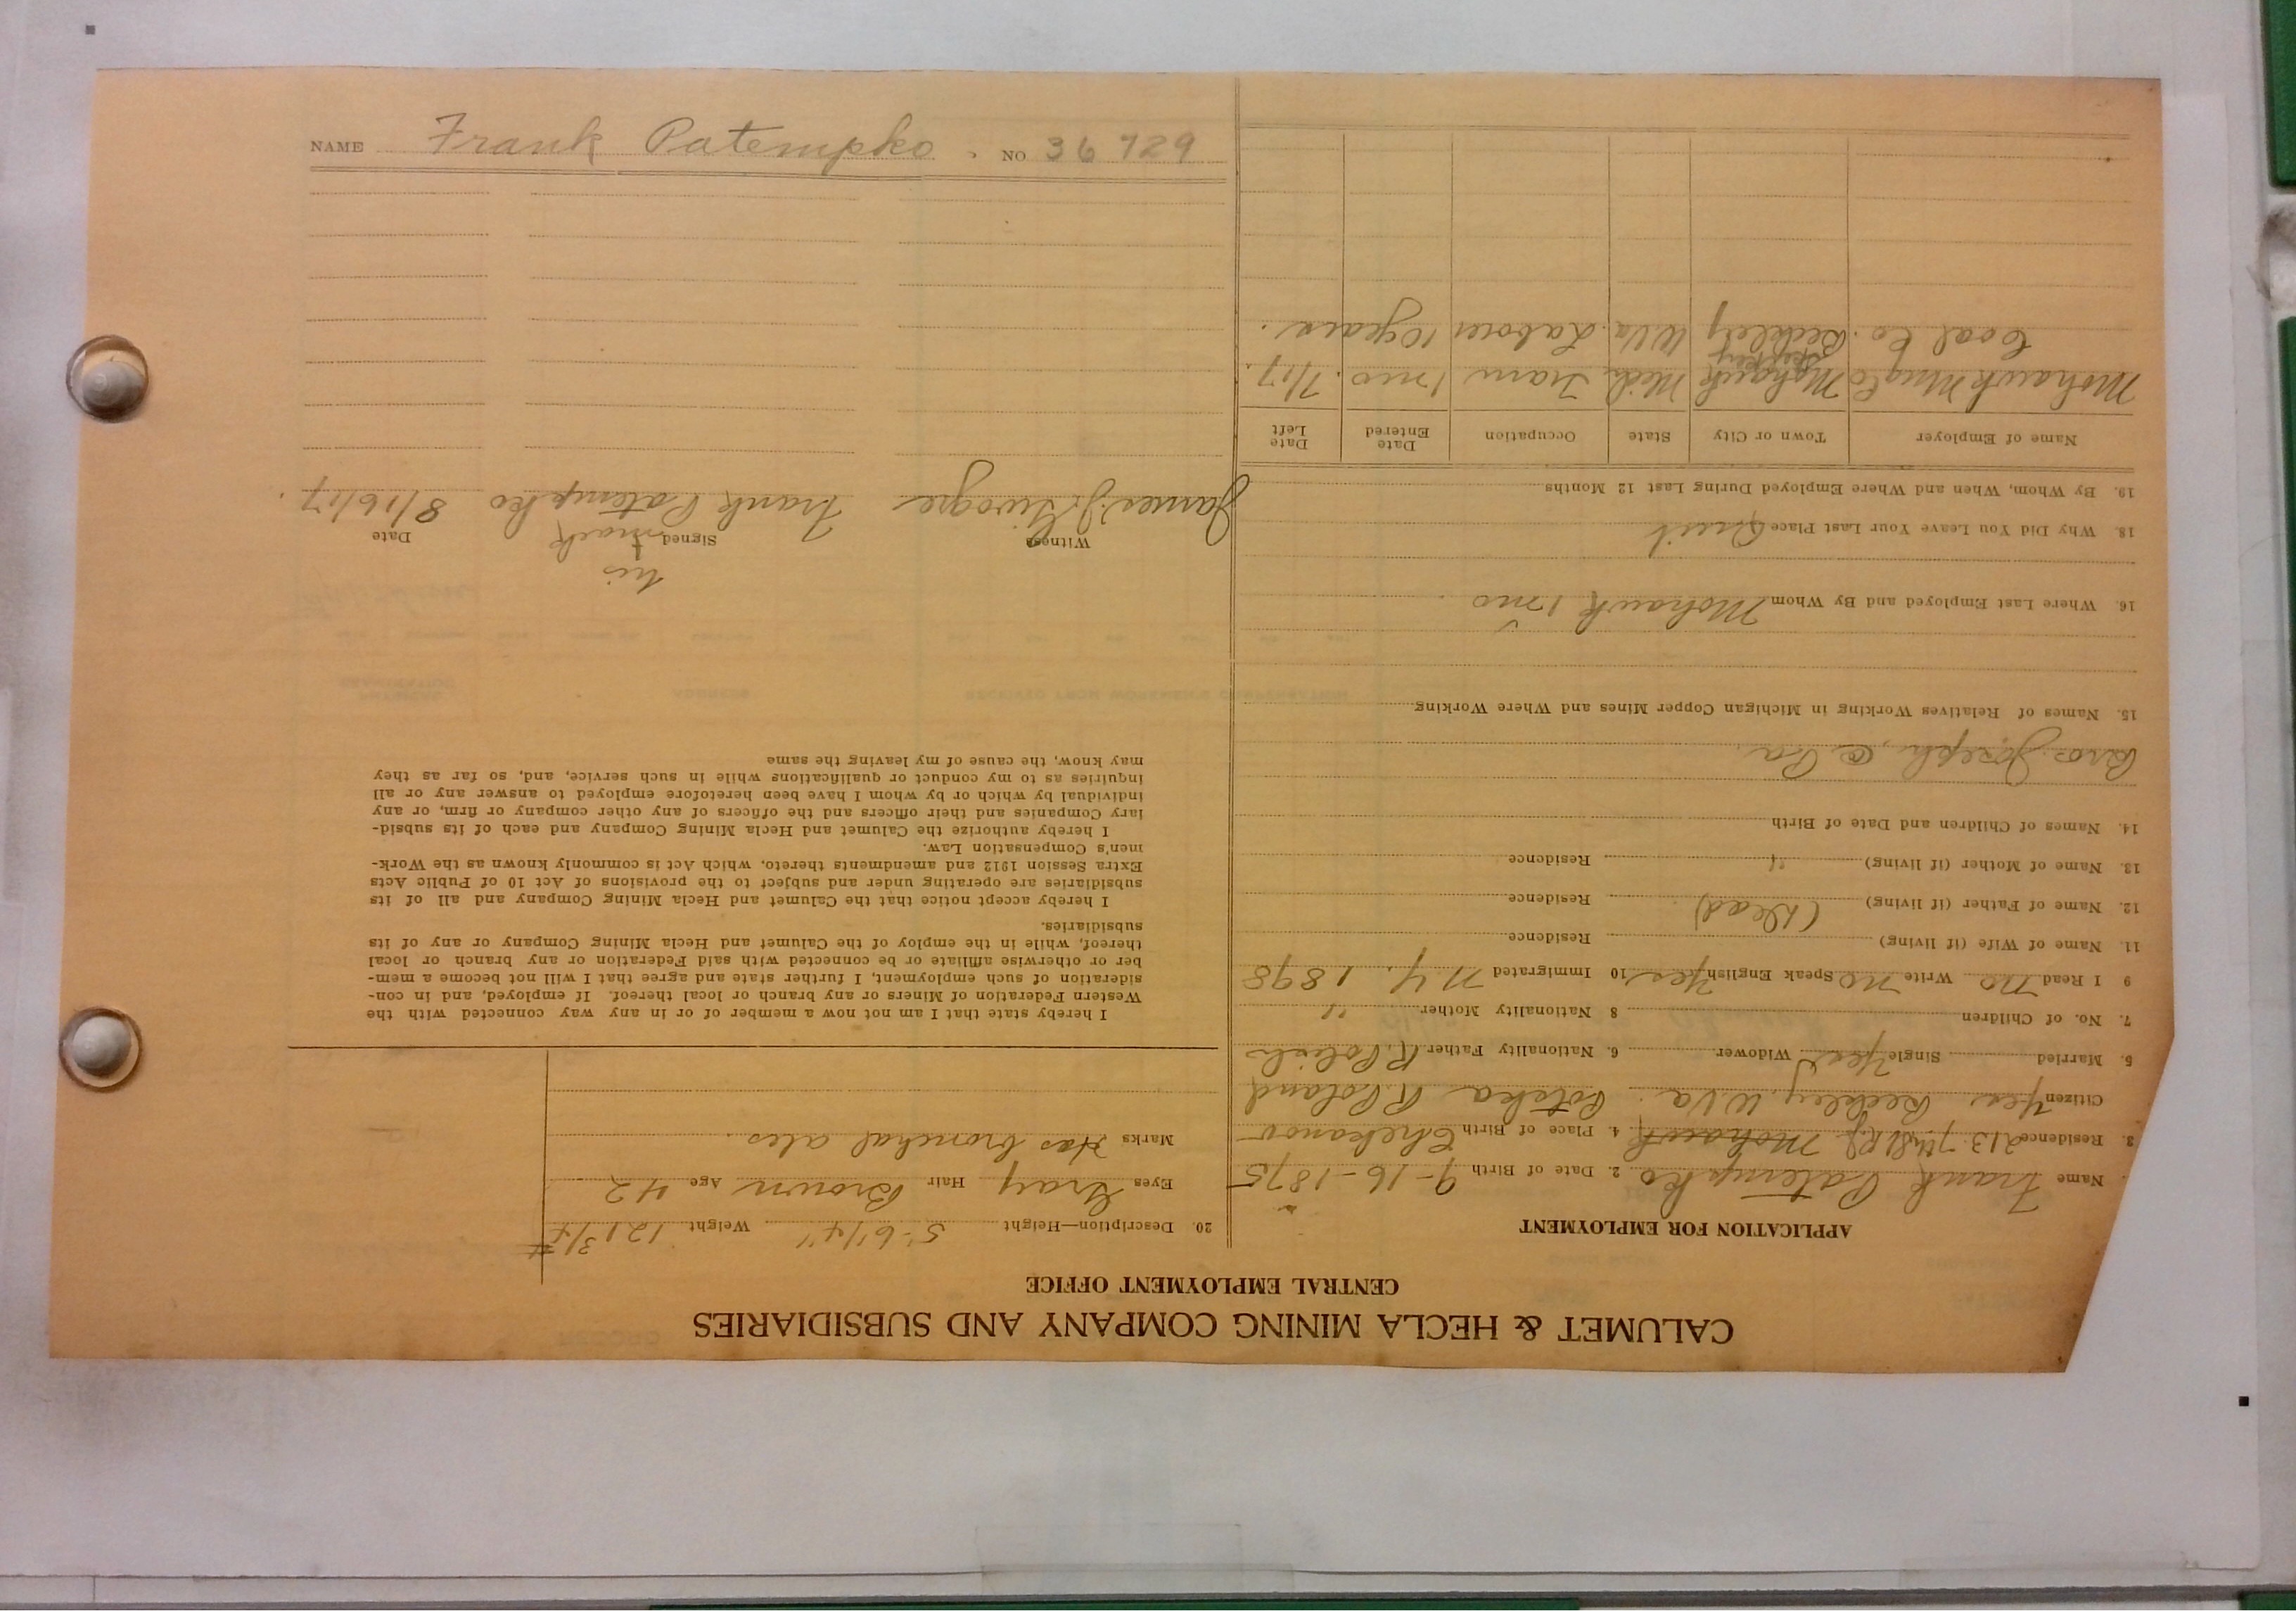 CALUMET & HECLA MINING COMPANY AND SUBSIDIARIES
CENTRAL EMPLOYMENT OFFICE
APPLICATION FOR EMPLOYMENT
Name Frank Patempko 2. Date of Birth 9-16-1875
3 Residence 213 7th St Mohawk 4. Place of Birth Chekanov
Citizen Yes Beckley W.Va. Poteka R Poland
5. Married Single Yes Widower 6. Nationality Father R. Polish
7. No. of Children 8 Nationality Mother "
9 I Read No Write No Speak English Yes 10 Immigrated N.Y. 1898
11. Name of Wife (if living) Residence
12. Name of Father (if living) (Dead) Residence
13. Name of Mother (if living) " Residence
14. Names of Children and Date of Birth
Bro=Joseph, @ Pa.
15. Names of Relatives Working in Michigan Copper Mines and Where Working
16. Where Last Employed and By Whom Mohawk 1 mo
18. Why Did You Leave Your Last Place Quit
19. By Whom, When and Where Employed During Last 12 Months
Name of Employer Town or City State Occupation Date Entered Date Left
Mohawk Mng Co Mohawk Mich Tram 1 mo. 7/17.
Coal Co. Beckley W.Va. Labour 10 years.
20. Description—Height 5'-6 1/4" Weight 121 3/4 #
Eyes Gray Hair Brown Age 42
Marks Has bronchal ales.
I hereby state that I am not now a member of or in any way connected with the
Western Federation of Miners or any branch or local thereof. If employed, and in con-
sideration of such employment, I further state and agree that I will not become a mem-
ber or otherwise affiliate or be connected with said Federation or any branch or local
thereof, while in the employ of the Calumet and Hecla Mining Company or any of its
subsidiaries.
I hereby accept notice that the Calumet and Hecla Mining Company and all of its
subsidiaries are operating under and subject to the provisions of Act 10 of Public Acts
Extra Session 1912 and amendments thereto, which Act is commonly known as the Work-
men's Compensation Law.
I hereby authorize the Calumet and Hecla Mining Company and each of its subsid-
iary Companies and their officers and the officers of any other company or firm, or any
individual by which or by whom I have been heretofore employed to answer any or all
inquiries as to my conduct or qualifications while in such service, and, so far as they
may know, the cause of my leaving the same
his
Witness Signed + mark Date
James J. Frank Patempko 8/16/17.
NAME Frank Patempko. NO 36729